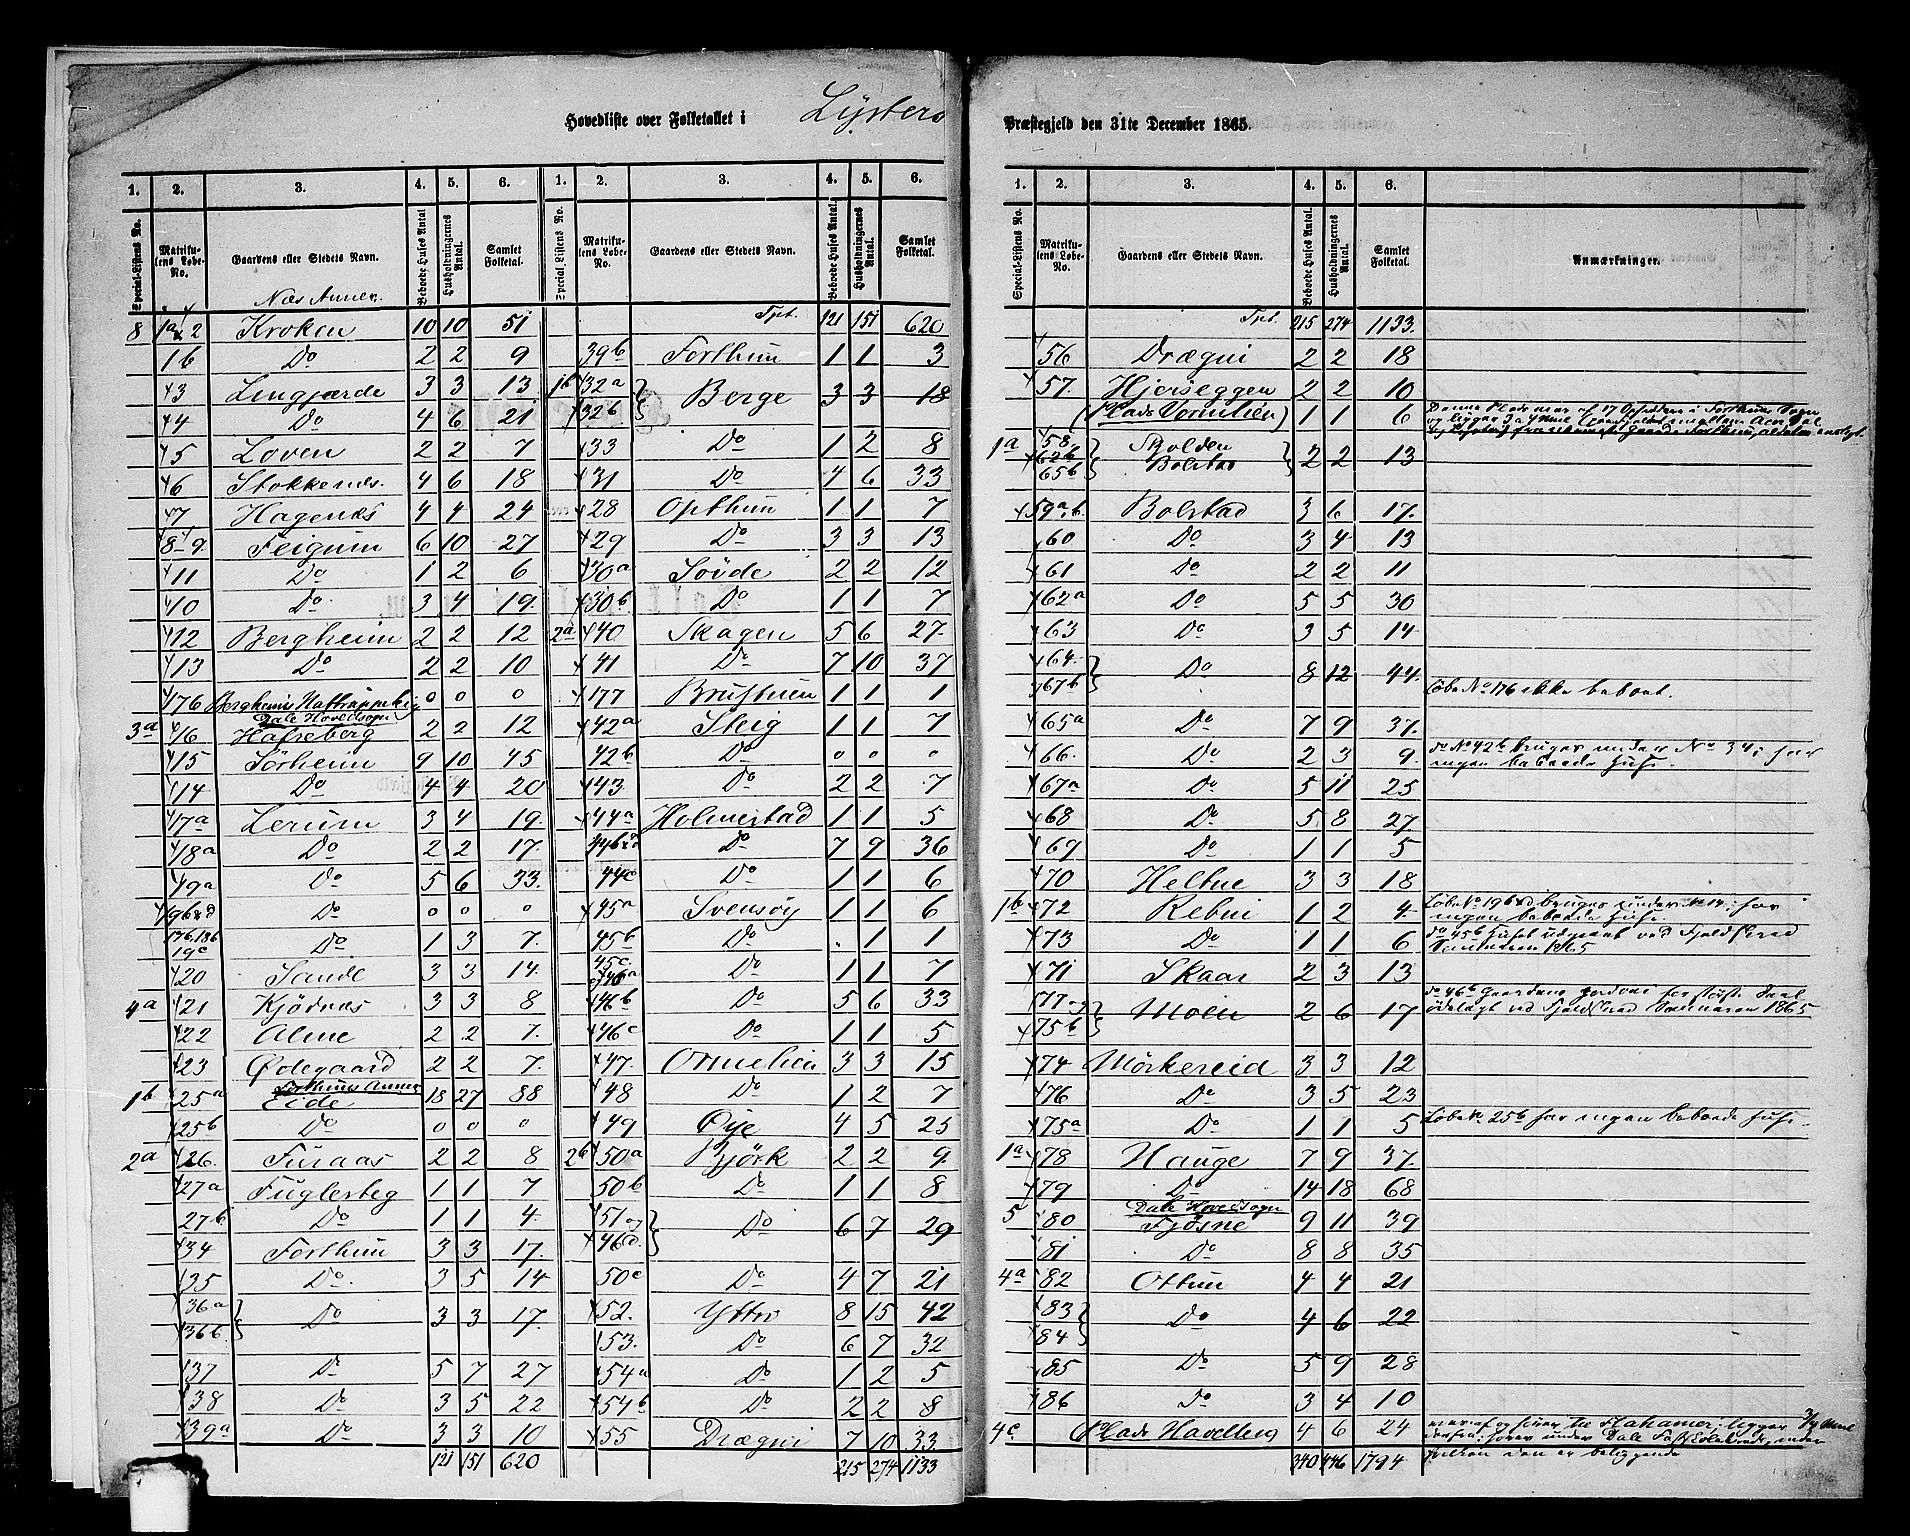 Hovedliste over Folketallet i Lysters Præstegjeld den 31te December 1865.
1. 2. 3. 4. 5. 6. 1. 2. 3. 4. 5. 6.
Special-Listens No. Matrikulens Løbe-No. Gaardens eller Stedets Navn. Beboede Huses Antal Husholdningernes Antal. Samlet Folketal. Special-Listens No. Matrikulens Løbe-No. Gaardens eller Stedets Navn. Beboede Huses Antal. Husholdningernes Antal. Samlet Folketal.
Næs Annex.
8 1a & 2 Kroken 10 10 51
1b Do 2 2 9
3 Lingjærde 3 3 13
4 Do 4 6 21
5 Loven 2 2 7
6 Stokkenæs. 4 6 18
7 Hagenæs 4 4 24
8 9. Feigum 6 10 27
11 Do 1 2 6
10 Do 3 4 19.
12 Bergheim 2 2 12
13 Do 2 2 10
176 Bergheims 0 0 0
Dale Hovedsogn
3a 16 Hafreberg 2 2 12
15 Sørheim 9 10 45
14 Do 4 4 20
17a Lerum 3 4 19
18a Do 2 2 17.
19a Do 5 6 33.
19b & d Do 0 0 0
17b, 18b 19c Do 1 3 7.
20 Sande 3 3 14.
4a 21 Kjødnæs 3 3 8
22 Alme 2 2 7.
23 Ødegaard 2 2 7.
Forthuns Annex
1b 25a Eide 18 27 88
25b Do 0 0 0
2a 26. Furaas 2 2 8
27a Fuglesteg 1 1 7
27b Do 1 1 4.
34 Forthun 3 3 17.
35 Do. 3 5 14
36a 36b. Do 3 3 17.
37 Do 5 7 27
38 Do 3 5 22
39a Do 3 3 10
121 151 620
Tprt. 121 151 620
39b Forthun 1 1 3
1b 32a 32b Berge 3 3 18
33 Do 1 2 8
31 Do 4 6 33
28 Opthun 1 1 7
29 Do 3 3 13
30a Søvde 2 2 12
30b Do 1 1 7
2a 40 Skagen 5 6 27.
41 Do 7 10 37
177 1 1 1
42a Steig 1 1 7
42b Do 0 0 0
43. Do 2 2 7
44a Holmestad 1 1 5
44b & d Do 7 9 36
44c Do 1 1 6
45a Svensøy 1 1 6
45b Do . 1 1
45c. 46a Do 1 1 7
46b Do 5 6 33
46c Do 1 1 5
47. Ormelien 3 3 15
48 Do 1 2 7
49 Øye 4 5 25
2b 50a Bjørk 2 2 9.
50b Do 1 1 8
51 og 46d. Do 6 7 29
50c Do 4 7 21
52. Yttri 8 15 42
53. Do 6 7 32
54a Do 1 2 5
54b Do 2 2 8
55 Drægni 7 10 33.
215 274 1133
1. 2. 3. 4. 5. 6.
Special-Listens No. Matrikulens Løbe-No. Gaardens eller Stedets Navn. Beboede Huses Antal. Husholdningernes Antal. Samlet Folketal. Anmærkninger.
Tprt. 215 274 1133.
56 Drægni 2 2 18
57. Hjerseggen 2 2 10
(Plads Vormelien) 1 1 6
1a 58. 62b 65b Skjolden Bolstad 2 2 13
59a.b. Bolstad 3 6 17.
60 Do 3 4 13
61 Do 2 2 11
62a Do 5 5 30
63 Do 3 5 14
64. 67b Do 8 12 44.
Løbe No 176 ikke beboet.
65a Do 7 9 37.
66. Do 2 3 9. do No 42b bruges under No 34; har
ingen beboede Huse.
67a Do 5 11 25
68 Do 5 8 27.
69 Do 1 1 5
70 Heltne 3 3 18
1b 72 Rebni 1 2 4. Løbe No 19b & d bruges under No 14; har
ingen beboede Huse.
73 Do 1 1 6 do 45b Huset udgaaet ved Fjeldskred
Sommeren 1865
71 Skaar 2 3 13
77 og 75b Moen 2 6 17. do 46b Gaardens Jordvei for største Deel
ødelagt ved Fjeldskred Sommeren 1865
74 Mørkereid 3 3 12
76 Do 3 5 23
75a Do 1 1 5 Løbe No 25b har ingen beboede Huse.
1a 78 Hauge 7 9 37.
79 Do 14 18 68
Dale Hovedsogn
5 80 Fjøsne 9 11 39
81 Do 8 8 35
4a 82 Ottum 4 4 21
83 84 Do 4 6 22
85 Do 5 9 28
86 Do 3 4 10
4c Plads Havelberg 4 6 24
340 446 1794